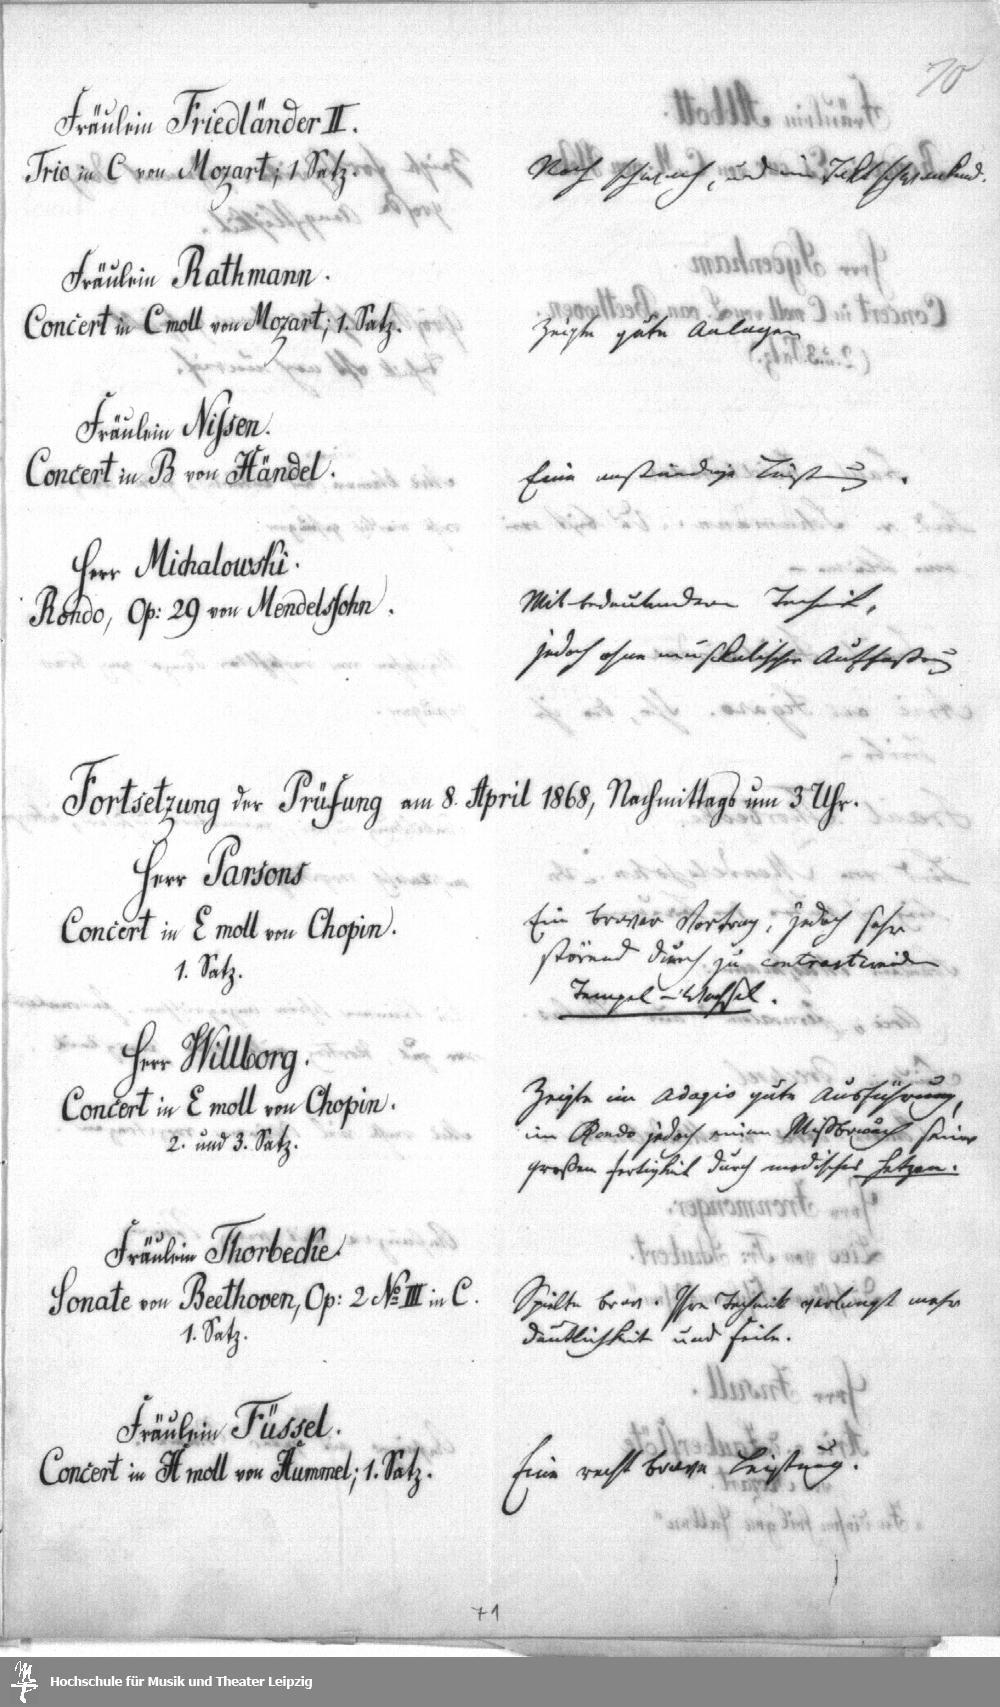 70
Fräulein Friedländer II.
Trio in C von Mozart; 1 Satz.
Noch schwach, und im Takt schwankend.
Fräulein Rathmann.
Concert in C moll von Mozart; 1. Satz.
Zeigte gute Anlagen
Fräulein Nissen.
Concert in B von Händel.
Eine anständige Leistung.
Herr Michalowski.
Rondo, Op: 29 von Mendelssohn.
Mit bedeutender Technik,
jedoch ohne musikalische Auffassung
Fortsetzung der Prüfung am 8. April 1868, Nachmittags um 3 Uhr.
Herr Parsons
Concert in E moll von Chopin.
1. Satz.
Ein braver Vortrag, jedoch sehr
störend durch zu
Tempo-Wechsel.
Herr Willborg.
Concert in E moll von Chopin.
2. und 3. Satz.
Zeigte im Adagio gute Ausführung,
im Rondo jedoch einen Missbrauch seiner
großen Fertigkeit durch modisches Hetzen.
Fräulein Thorbecke.
Sonate von Beethoven, Op: 2 No III in C.
1. Satz.
Spielte brav. Ihre Technik verlangt mehr
Deutlichkeit und Feile.
Fräulein Füssel.
Concert in H moll von Hummel; 1. Satz.
Eine recht brave Leistung.
71
Hochschule für Musik und Theater Leipzig